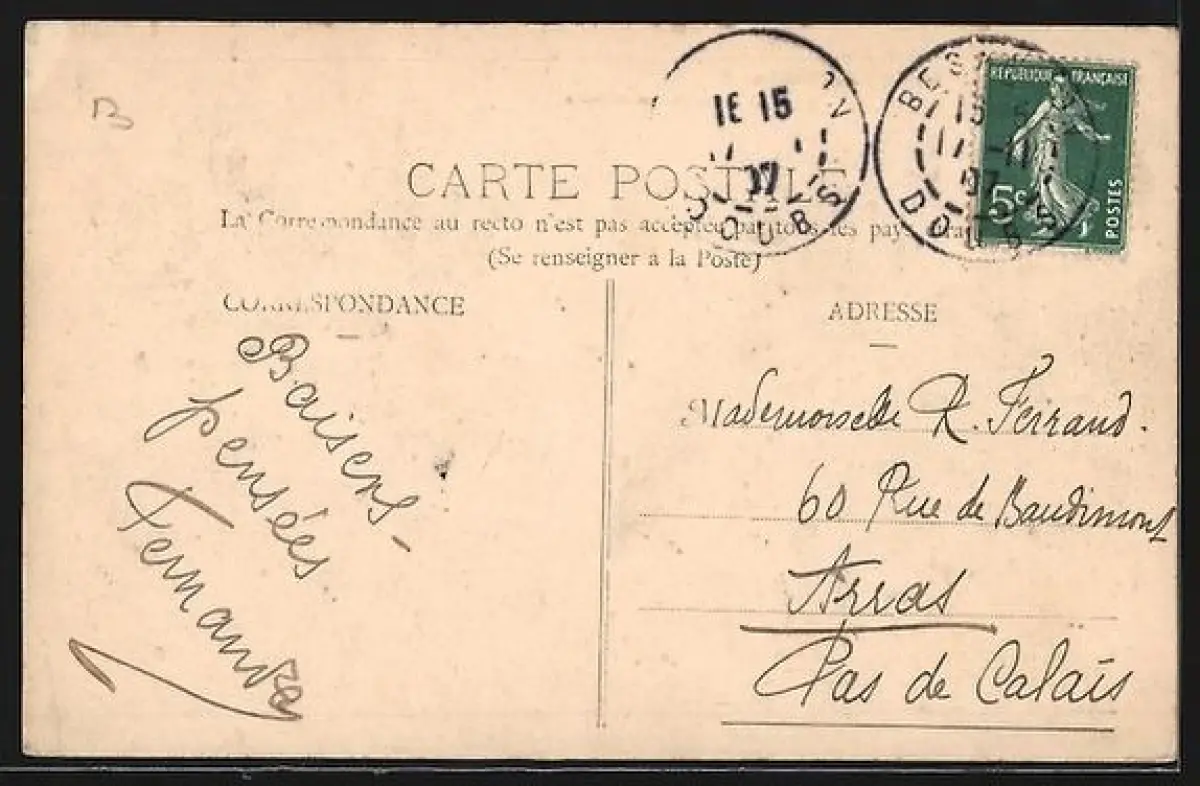 B
RÉPUBLIQUE FRANÇAISE
5c
POSTES
DOUBS
IE 15
07
DOUBS
07
CARTE POSTALE
La Correspondance au recto n'est pas acceptée par tous les pays
(Se renseigner à la Poste)
CORRESPONDANCE
Baisers -
pensées
Fernande
ADRESSE
Mademoiselle R. Ferraud.
60 Rue de Baudimont
Arras
Pas de Calais